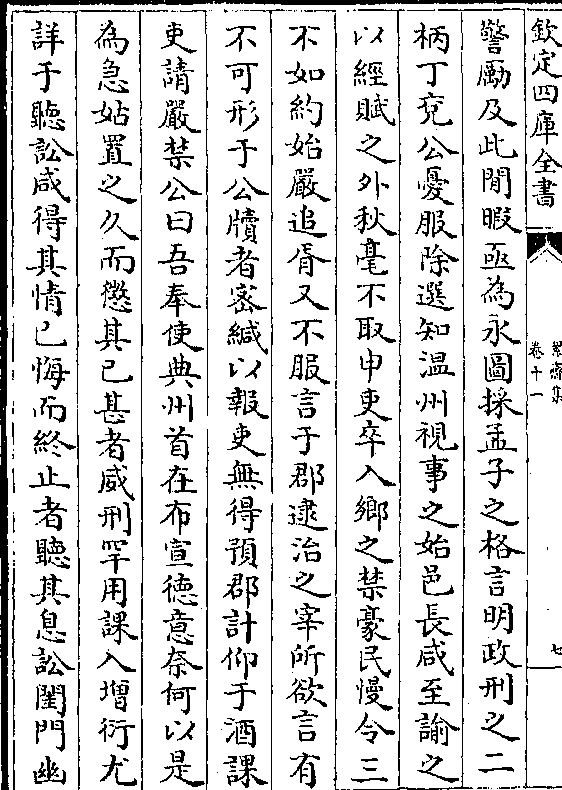 欽定四庫全書
絜齋集
卷十一
七
警勵及此閒暇亟為永圖採孟子之格言明政刑之二
柄丁兗公憂服除選知温州視事之始邑長咸至諭之
以經賦之外秋毫不取申吏卒入鄉之禁豪民慢令三
不如約始嚴追胥又不服言于郡逮治之宰所欲言有
不可形于公牘者密緘以報吏無得預郡計仰于酒課
吏請嚴禁公曰吾奉使典州首在布宣德意奈何以是
為急姑置之久而懲其已甚者威刑罕用課入增衍尤
詳于聽訟咸得其情已悔而終止者聽其息訟閨門幽